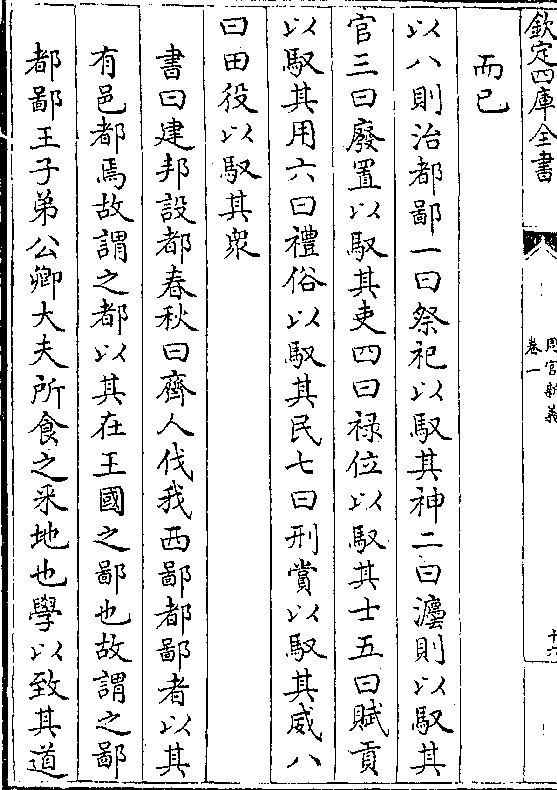 欽定四庫全書
周官新義
卷一
十六
而已
以八則治都鄙一曰祭祀以馭其神二曰灋則以馭其
官三曰廢置以馭其吏四曰禄位以馭其士五曰賦貢
以馭其用六曰禮俗以馭其民七曰刑賞以馭其威八
曰田役以馭其衆
書曰建邦設都春秋曰齊人伐我西鄙都鄙者以其
有邑都焉故謂之都以其在王國之鄙也故謂之鄙
都鄙王子弟公卿大夫所食之采地也學以致其道